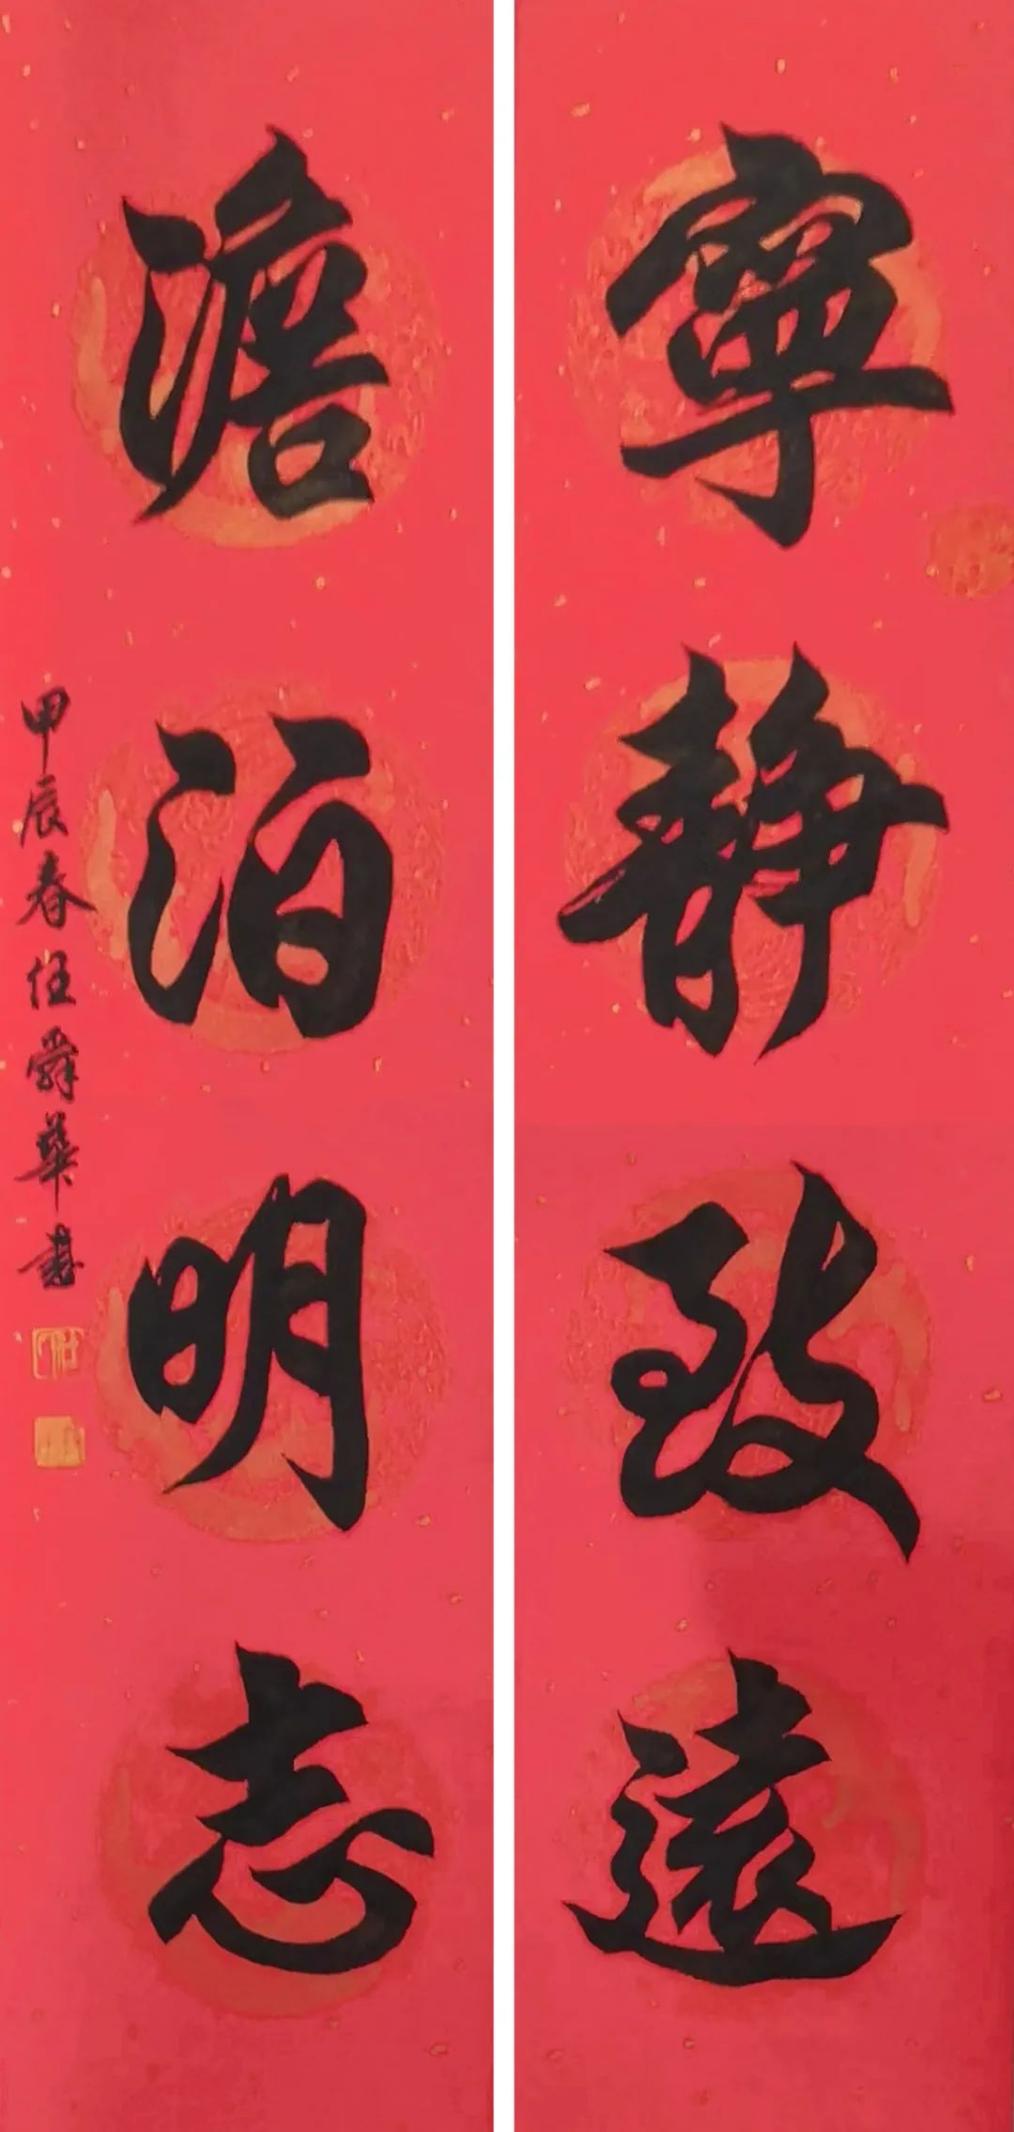 寧靜致遠
澹泊明志
甲辰春任舜華書